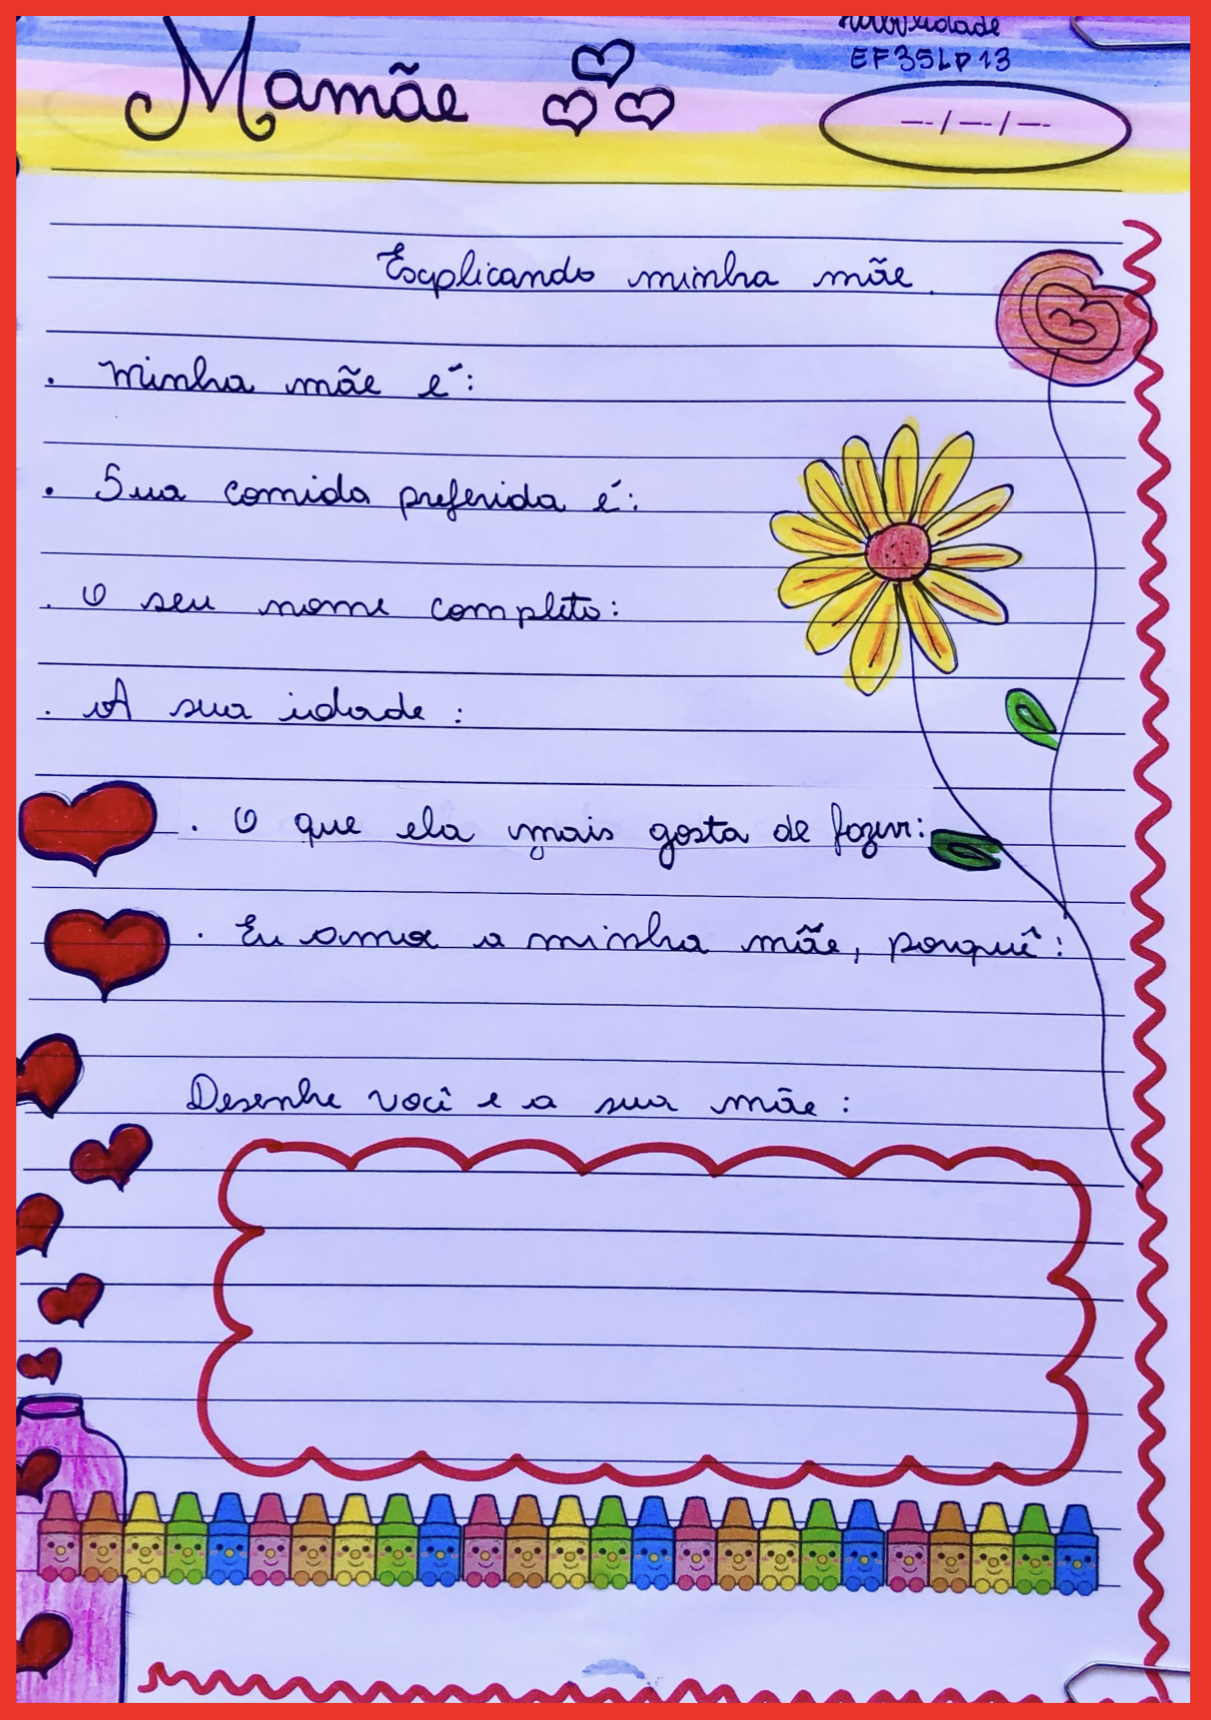 EF35LP13
Mamãe
--/--/--
Explicando minha mãe.
. Minha mãe é:
. Sua comida preferida é:
. O seu nome completo:
. A sua idade:
. O que ela mais gosta de fazer:
. Eu amo a minha mãe, porquê:
Desenhe você e a sua mãe: